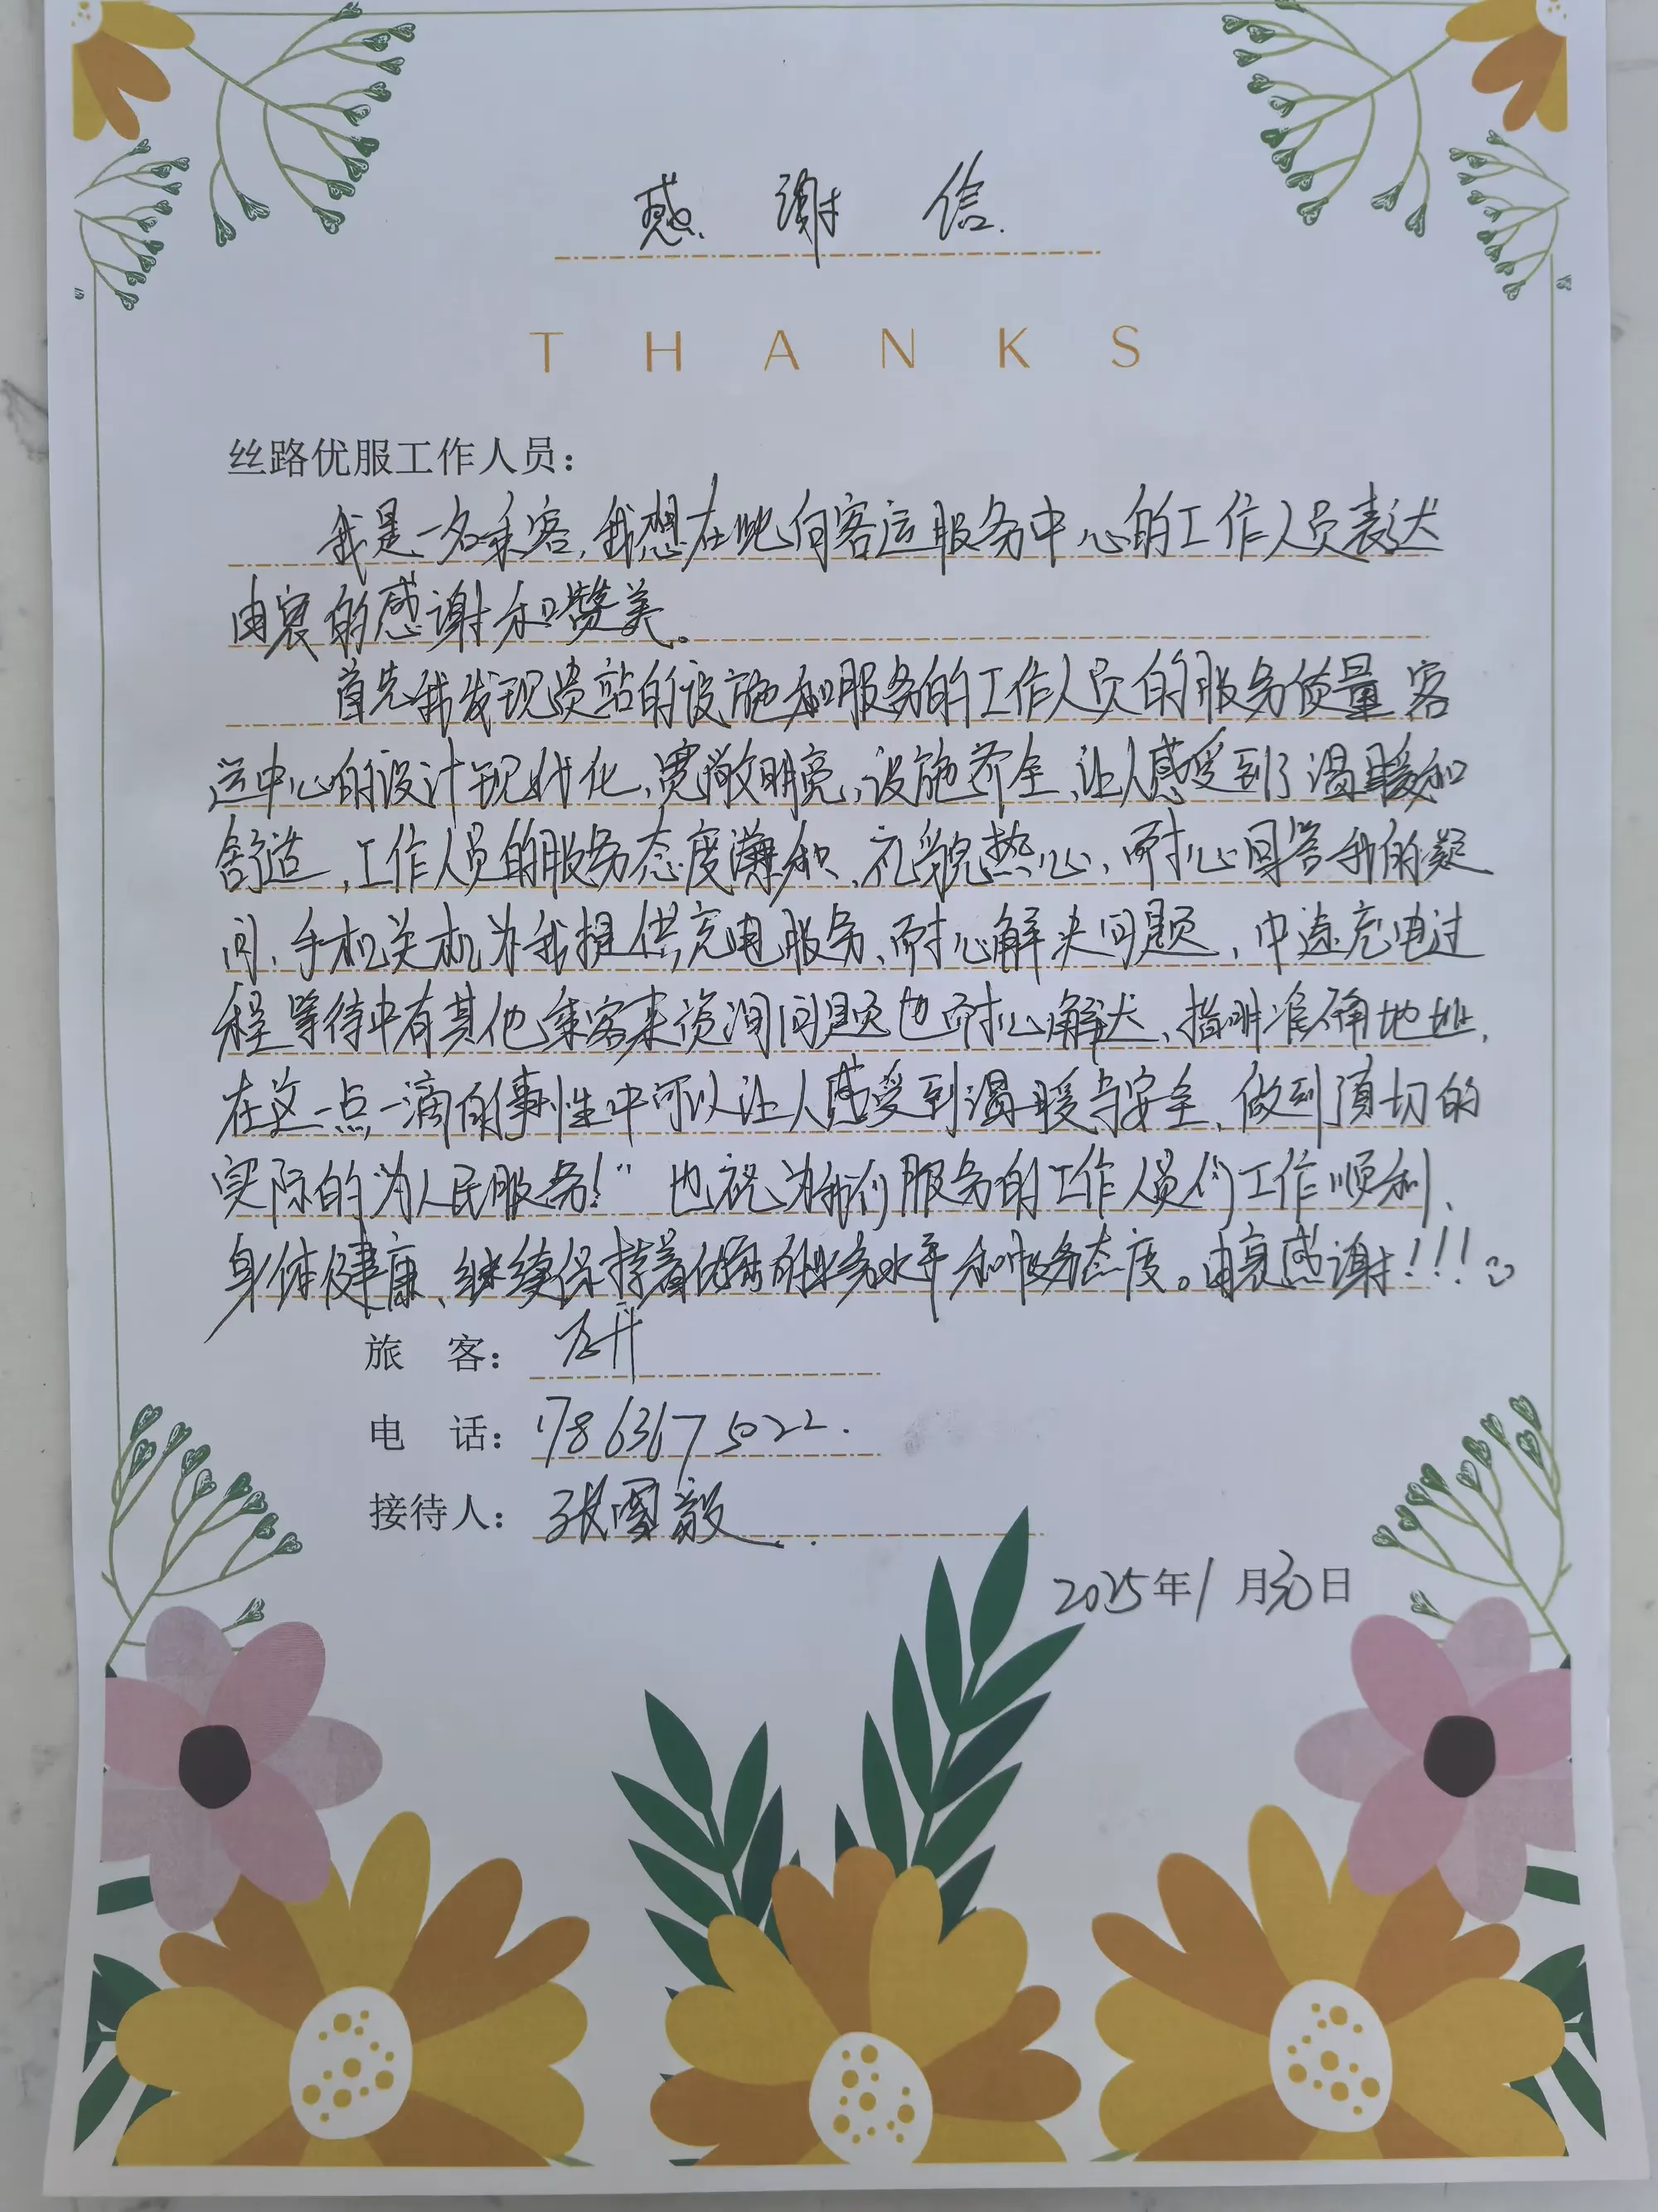 感谢信
THANKS
丝路优服工作人员：
我是一名乘客，我想在此向客运服务中心的工作人员表达
由衷的感谢和赞美。
首先我发现贵站的设施和服务的工作人员的服务质量客
运中心的设计现代化、宽敞明亮、设施齐全、让人感受到了温暖和
舒适，工作人员的服务态度 、礼貌热心、耐心回答我的疑
问、手机关机为我提供充电服务、耐心解决问题，中途充电过
程等待中有其他乘客来资询问题也耐心解决、指明准确地址.
在这一点一滴的事 中可以让人感受到温暖与安全、做到 切的
实际的“为人民服务！”也祝为我们服务的工作人员们工作顺利、
身体健康、继续保持着优秀的业务水平和服务态度。由衷感谢！！！
旅 客：
电 话：17863675022.
接待人：张国毅
2025年1月30日